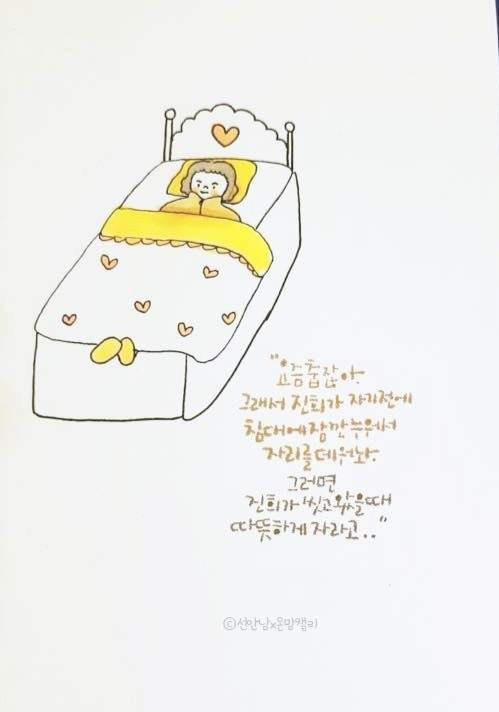 "요즘 춥잖아.
그래서 진희가 자기전에
침대에 잠깐 누워서
자리를 데워놔.
그러면
진희가 씻고 왔을때
따뜻하게 자라고.."
©선안남x온맘캘리